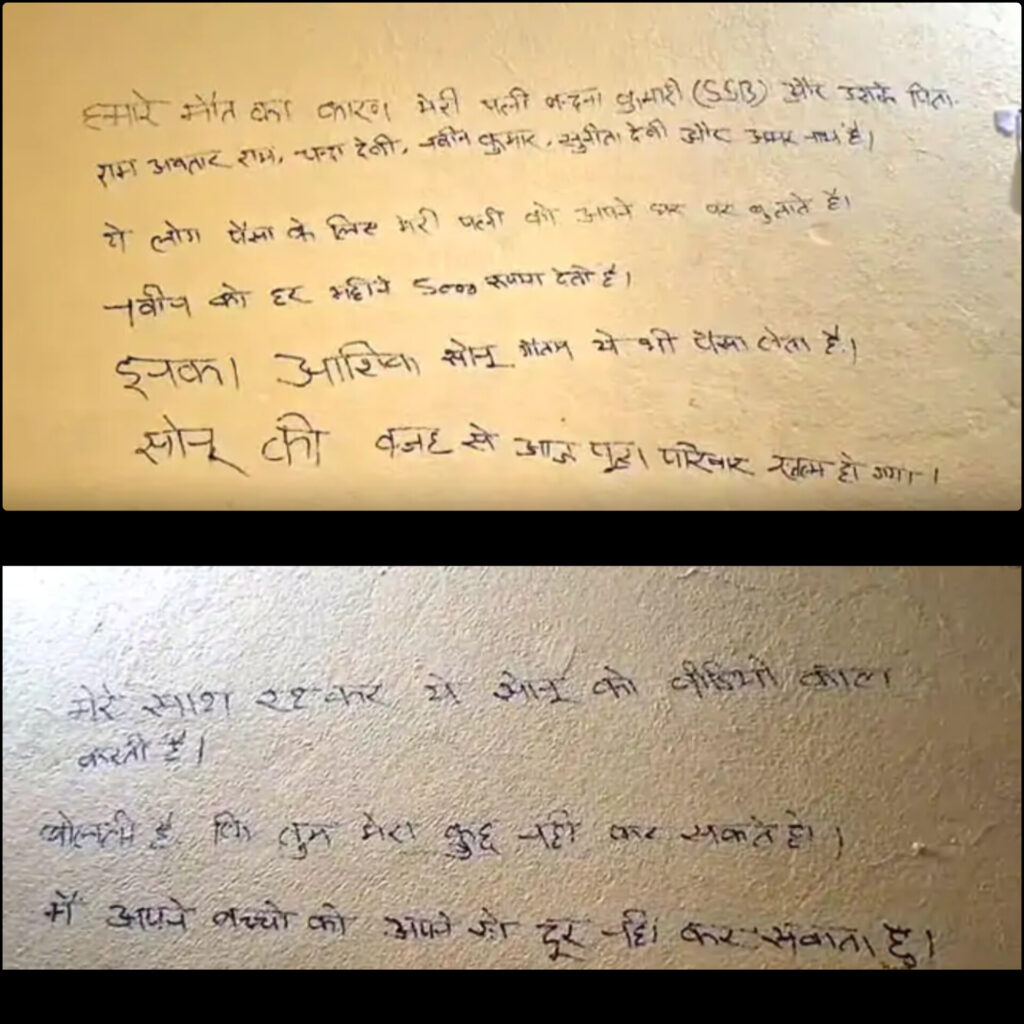 हमारे मौत का कारण मेरी पत्नी बन्दना कुमारी (SSB) और उसके पिता
राम अवतार राम, चन्दा देवी, नवीन कुमार, सुनीता देवी और अमर नाथ है।
ये लोग पैसा के लिए मेरी पत्नी को अपने घर पर बुलाते है।
नवीन को हर महीने 5000 रूपया देती है।
इनका आशिक सोनू गौतम ये भी पैसा लेता है।
सोनू की वजह से आज पूरा परिवार खत्म हो गया।
मेरे साथ रहकर ये सोनू को वीडियो काल
करती है।
बोलती है कि तुम मेरा कुछ नही कर सकते हो।
मैं अपने बच्चो को अपने से दूर नहीं कर सकता हु।